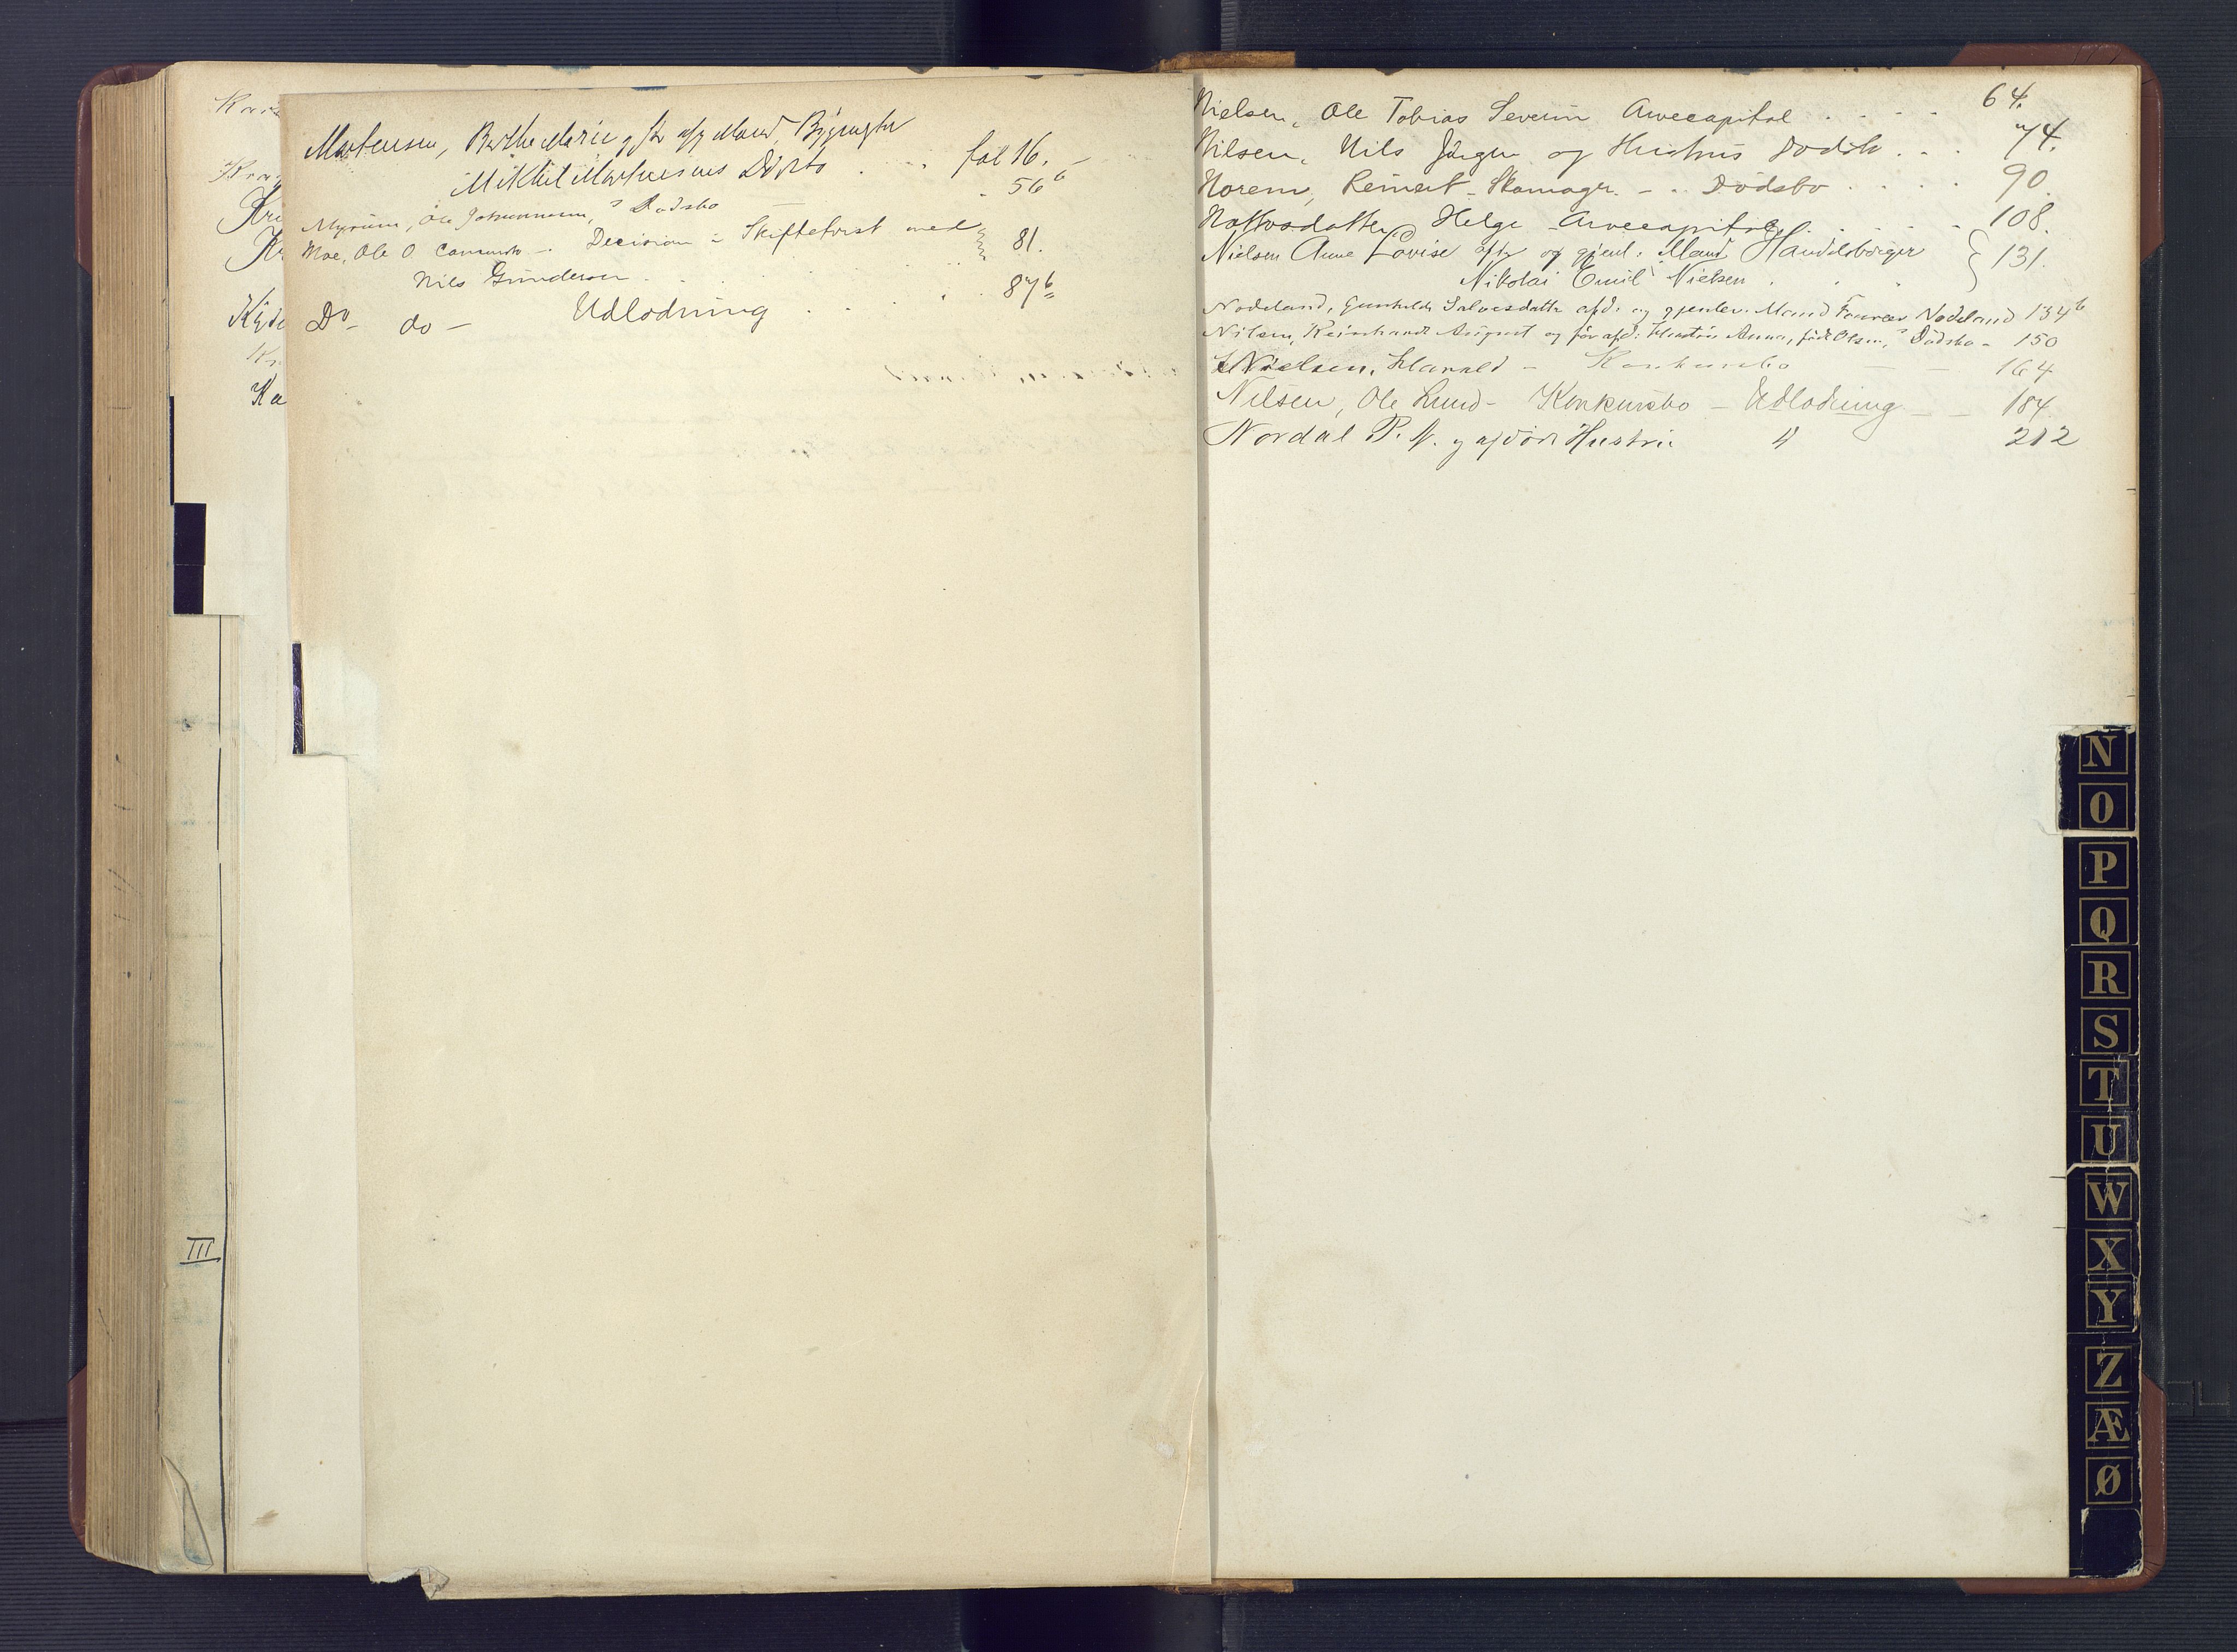 Kar
Kra
Kr
Kr
Kyd
Kr
Ka
III
Martensen, Berthe Marie og før afg Mand, Bygmester
Mikkel Martinsens Dødsbo . . . fol 16. –
Myrum, Ole Johannesen, s Dødsbo – . 56 b
Moe, Ole O – Decision i Skiftetvist med
Nils Gundersen . . . 81.
Do – do – Udlodning . . . . 87 b
Nielsen, Ole Tobias Severin Arvecapital . . . . 64.
Nilsen, Nils Jørgen og Hustrus Dødsb. . . 74.
Norem, Reinert – Skomager. – . Dødsbo . . . . 90.
Helge – Arvecapital . . . . 108.
Nielsen Anne Lovise afdg og gjenl. Mand Handelsborger
Nikolai Emil Nielsen . . . 131.
Nodeland, Gunhilde Salvesdatter afd. og gjenlev. Mand Nodeland 134 b
Nilsen, Reinhardt August og før afd. Hustru Anna, født Olsen, s Dødsbo – 150
Nielsen, Harald – Konkursbo – – 164
Nilsen, Ole Lund – Konkursbo – Udlodning – – 184
Nordal P. N. og afdøde Hustru " 212
N
O
P
Q
R
S
T
U
W
X
Y
Z
Æ
Ø